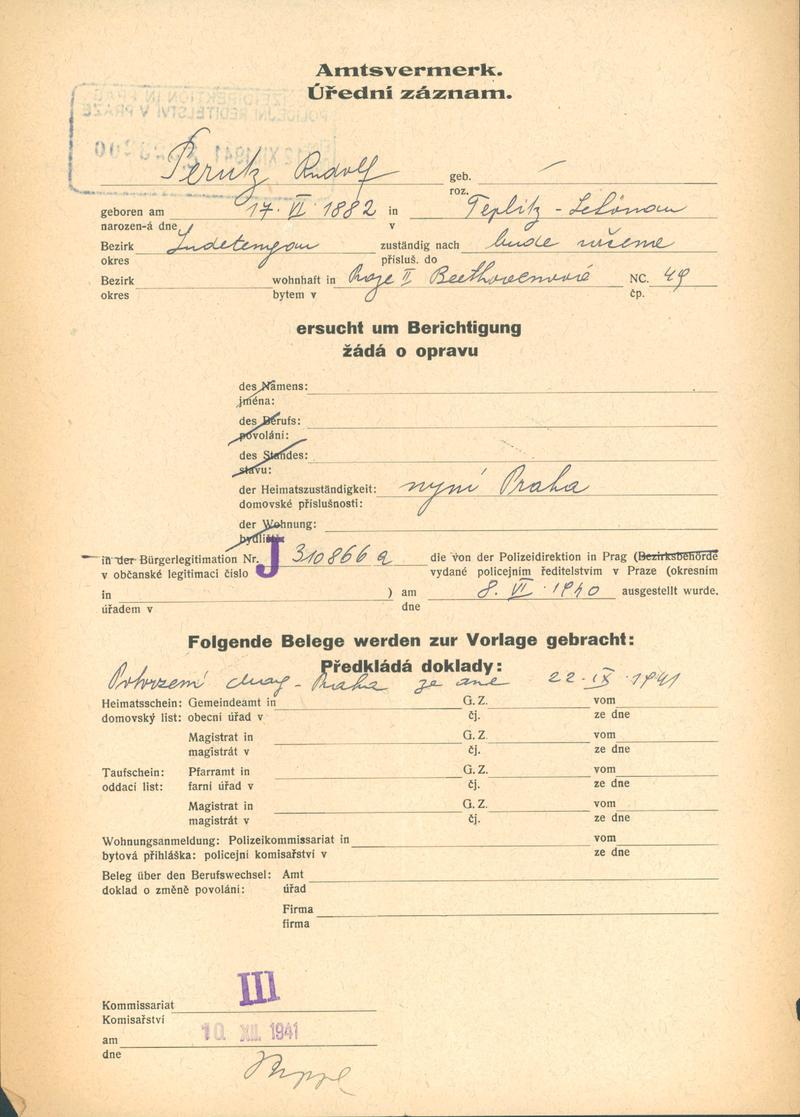 Amtsvermerk.
Úřední záznam.
POLICEJNÍ ŘEDITELSTVÍ V PRAZE
Perutz Rudolf geb. —
roz.
geboren am 17. VI. 1882 in Teplitz - Schönau
narozen-á dne v
Bezirk Sudetengau zuständig nach bude určeno
okres přísluš. do
Bezirk wohnhaft in Praze II Beethovenova NC. 49
okres bytem v čp.
ersucht um Berichtigung
žádá o opravu
des Namens:
jména:
des Berufs:
povolání:
des Standes:
stavu:
der Heimatszuständigkeit: nyní Praha
domovské příslušnosti:
der Wohnung:
bydliště
in der Bürgerlegitimation Nr. J 310866 a die von der Polizeidirektion in Prag (Bezirksbehörde
v občanské legitimaci číslo vydané policejním ředitelstvím v Praze (okresním
in ) am 8. VI. 1940 ausgestellt wurde.
úřadem v dne
Folgende Belege werden zur Vorlage gebracht:
Předkládá doklady:
Potvrzení - Praha ze dne 22. IX. 1941
Heimatsschein: Gemeindeamt in G. Z. vom
domovský list: obecní úřad v čj. ze dne
Magistrat in G. Z. vom
magistrát v čj. ze dne
Taufschein: Pfarramt in G. Z. vom
oddací list: farní úřad v čj. ze dne
Magistrat in G. Z. vom
magistrát v čj. ze dne
Wohnungsanmeldung: Polizeikommissariat in vom
bytová přihláška: policejní komisařství v ze dne
Beleg über den Berufswechsel: Amt
doklad o změně povolání: úřad
Firma
firma
III
Kommissariat
Komisařství
am 10. XII. 1941
dne